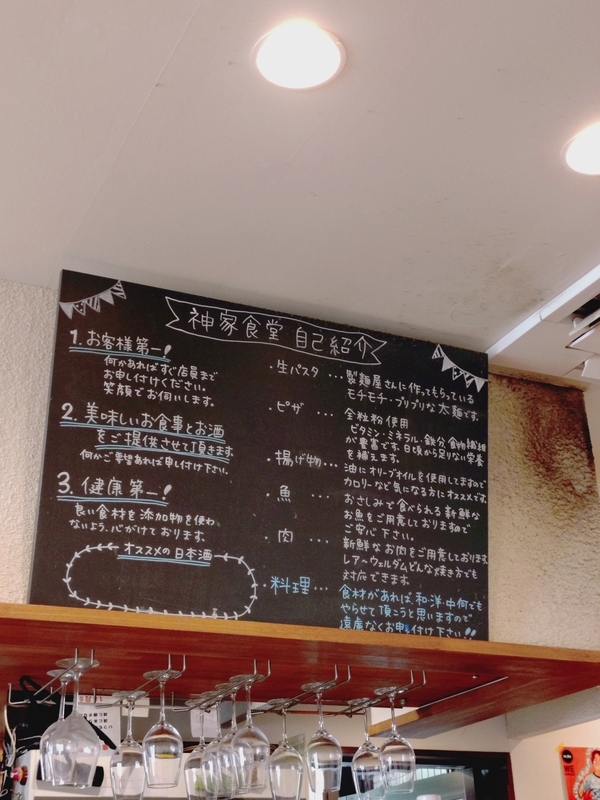 神家食堂 自己紹介
1.お客様第一!
何かあればすぐ店員まで
お申し付けください。
笑顔でお伺いします。
2.美味しいお食事とお酒
をご提供させて頂きます。
何かご要望あれば申し付け下さい。
3.健康第一!
良い食材を添加物を使わ
ないよう、心がけております。
オススメの日本酒
・生パスタ…製麺屋さんに作ってもらっている
モチモチ・プリプリな太麺です。
・ピザ…全粒粉使用
ビタミン・ミネラル・鉄分・食物繊維
が豊富です。日頃から足りない栄養
を補えます。
・揚げ物…油にオリーブオイルを使用してますので
カロリーなど気になる方にオススメです。
・魚…おさしみで食べられる新鮮な
お魚をご用意しておりますので
ご安心下さい。
・肉…新鮮なお肉をご用意しております。
レア〜ウェルダムどんな焼き方でも
対応できます。
・料理…食材があれば、和・洋・中何でも
やらせて頂こうと思いますので
遠慮なくお申し付け下さい!!